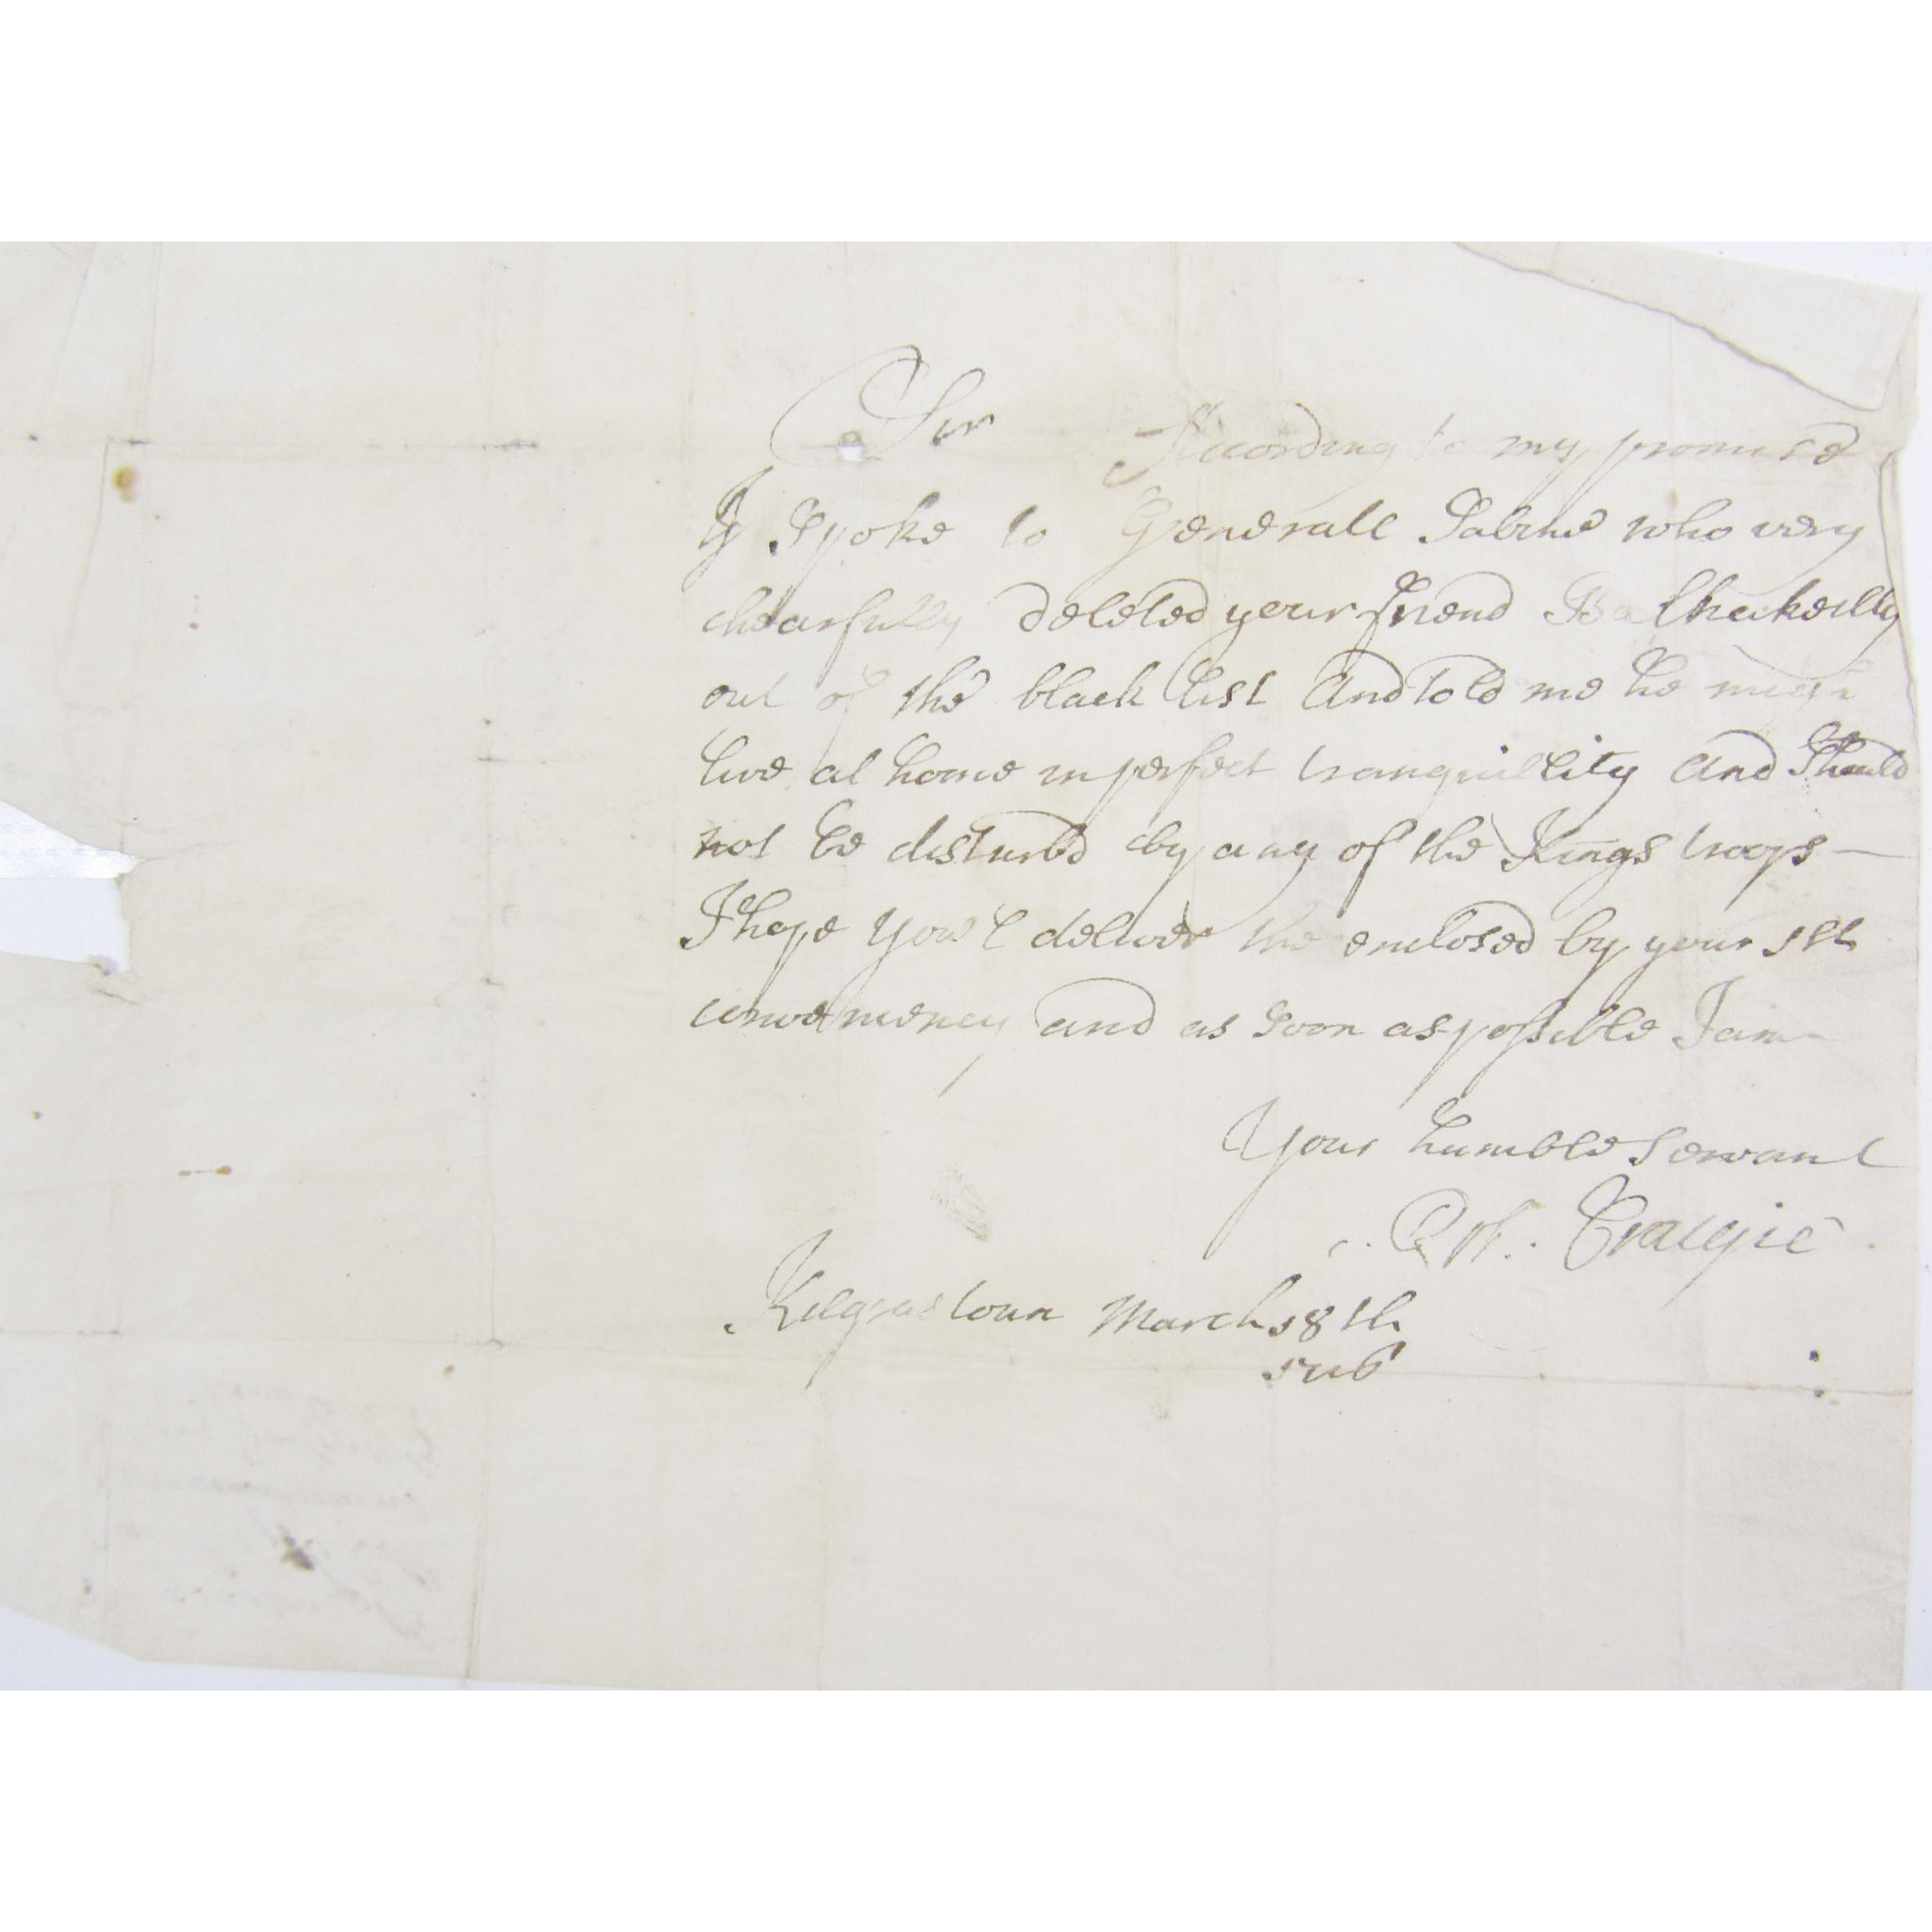 Sir According to my promise
I Spoke to Generall Sabine who very
chearfully deleted your friend
out of the black list And told me he might
live at home in perfect tranquillity and Should
not be disturbd by any of the Kings troops —
I hope you'l deliver the enclosed by your 1st
conveniency and as Soon as possible I am
Your humble Servant
Craigie
Kilgrastoun March 18th
1716